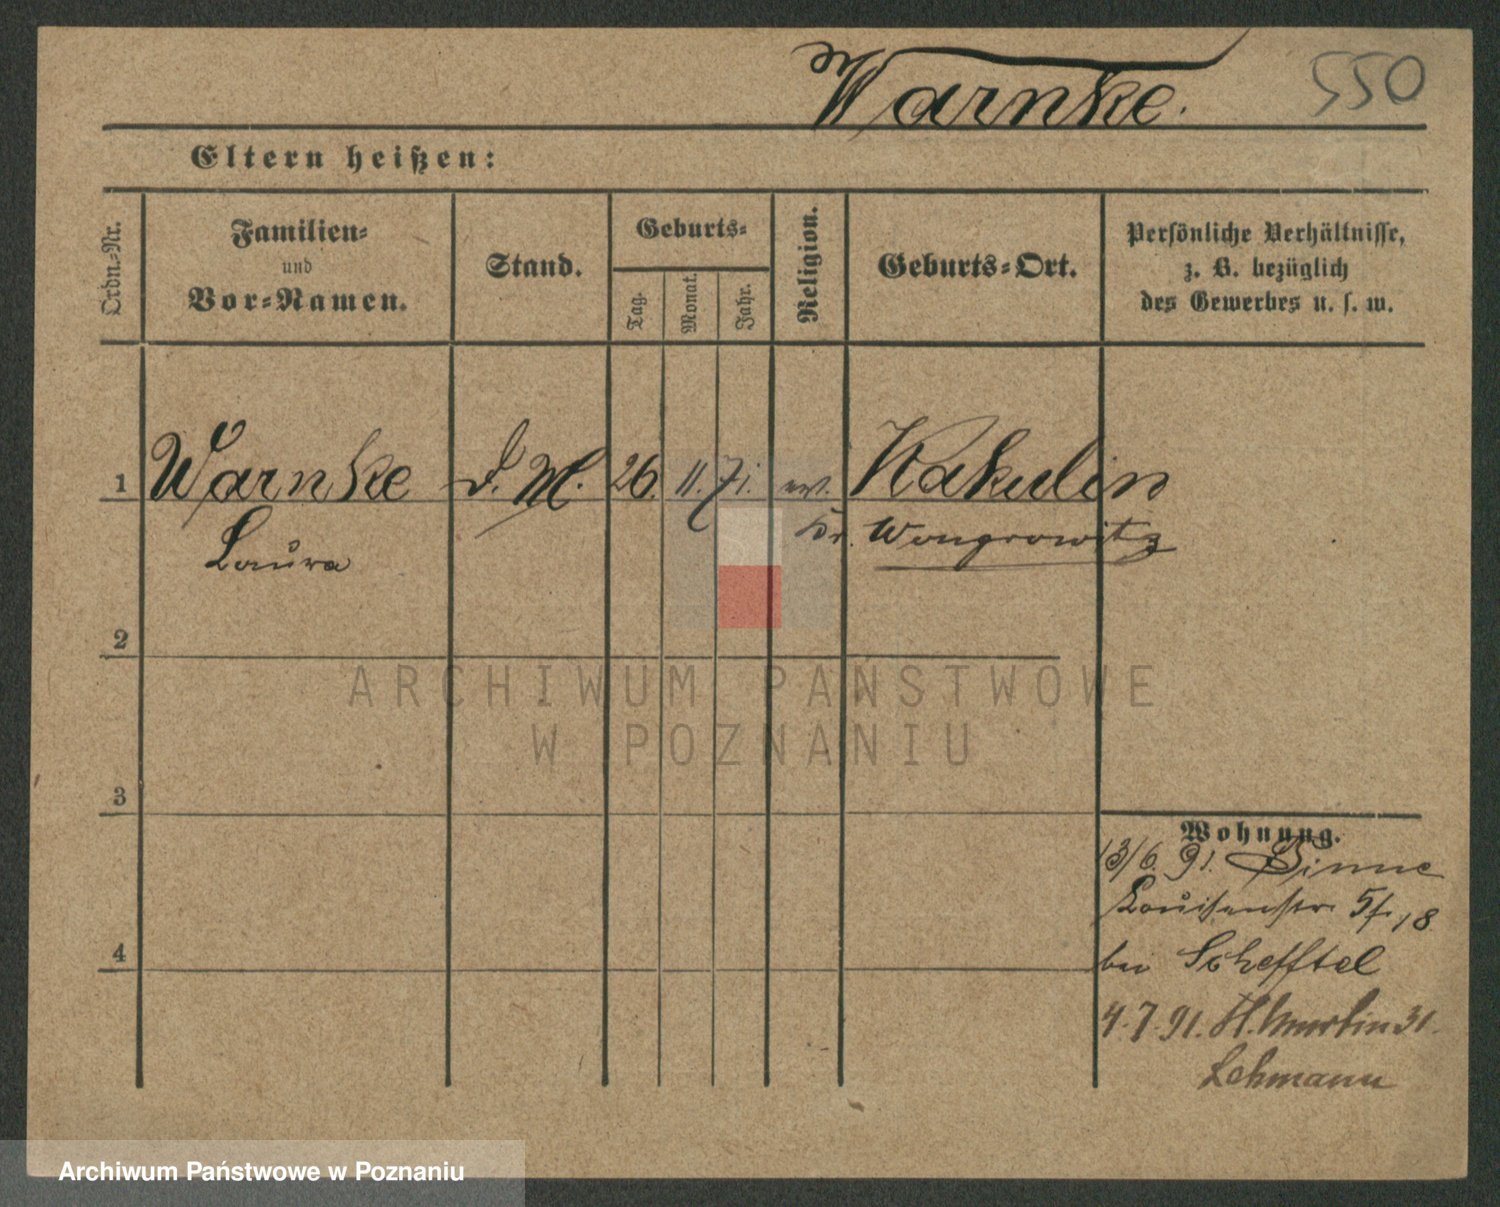 Warnke. 550
Eltern heißen:
Ordn.-Nr.
Familien-
und
Vor-Namen.
Stand.
Geburts-
Tag.
Monat.
Jahr.
Religion.
Geburts-Ort.
Persönliche Verhältnisse,
z. B. bezüglich
des Gewerbes u. s. w.
1 Warnke D. M. 26. 11. 71. ev. Kakulin
Laura Kr. Wongrowitz
2
ARCHIWUM PAŃSTWOWE
W POZNANIU
3
Wohnung.
13/6. 91. Pinne
Louisenstr 5/ 18
4
bei Schefftel
4. 7. 91. St. Martin 31.
Lehmann
Archiwum Państwowe w Poznaniu